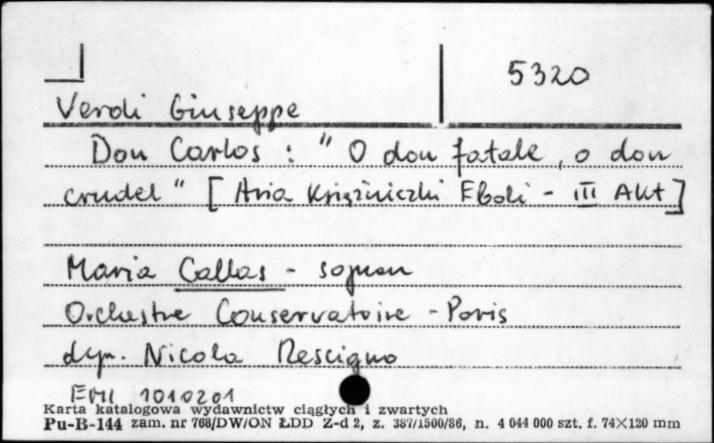 5320
Verdi Giuseppe
Don Carlos : " O don fatale, o don
crudel " [ Aria Księżniczki Eboli - III Akt ]
Maria Callas - sopran
Orchestre Conservatoire - Paris
dyr. Nicola Rescigno
EMI 1010201
Karta katalogowa wydawnictw ciągłych i zwartych
Pu-B-144 zam. nr 768/DW/ON ŁDD Z-d 2, z. 387/1500/86, n. 4 044 000 szt. f. 74×120 mm